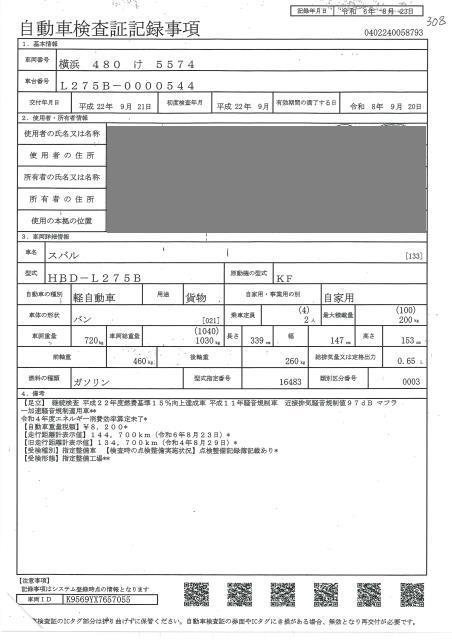 記録年月日 令和 6年 8月 23日
308
自動車検査証記録事項
0402240058793
1．基本情報
車両番号 横浜 480 け 5574
車台番号 L275B-0000544
交付年月日 平成 22年 9月 21日 初度検査年月 平成 22年 9月 有効期間の満了する日 令和 8年 9月 20日
2．使用者・所有者情報
使用者の氏名又は名称
使用者の住所
所有者の氏名又は名称
所有者の住所
使用の本拠の位置
3．車両詳細情報
車名 スバル [133]
型式 HBD-L275B 原動機の型式 KF
自動車の種別 軽自動車 用途 貨物 自家用・事業用の別 自家用
車体の形状 バン [021] 乗車定員 (4) 2人 最大積載量 (100) 200kg
車両重量 720kg 車両総重量 (1040) 1030kg 長さ 339cm 幅 147cm 高さ 153cm
前軸重 460kg 後軸重 260kg 総排気量又は定格出力 0.65L
燃料の種類 ガソリン 型式指定番号 16483 類別区分番号 0003
4．備考
【足立】 継続検査 平成22年度燃費基準15%向上達成車 平成11年騒音規制車 近接排気騒音規制値97dB マフラ
ー加速騒音規制適用車**
令和4年度エネルギー消費効率算定未了*
【自動車重量税額】¥8,200*
【走行距離計表示値】144,700km（令和6年8月23日）*
【旧走行距離計表示値】134,700km（令和4年8月29日）*
【受検種別】指定整備車 【検査時の点検整備実施状況】点検整備記録簿記載あり*
【受検形態】指定整備工場**
【注意事項】
記録事項はシステム登録時点の情報となります
車両ID K9569YX7657055
車検査証のICタグ部分は折り曲げずに保管ください。自動車検査証の券面やICタグに き損がある場合、無効となり再交付が必要です。